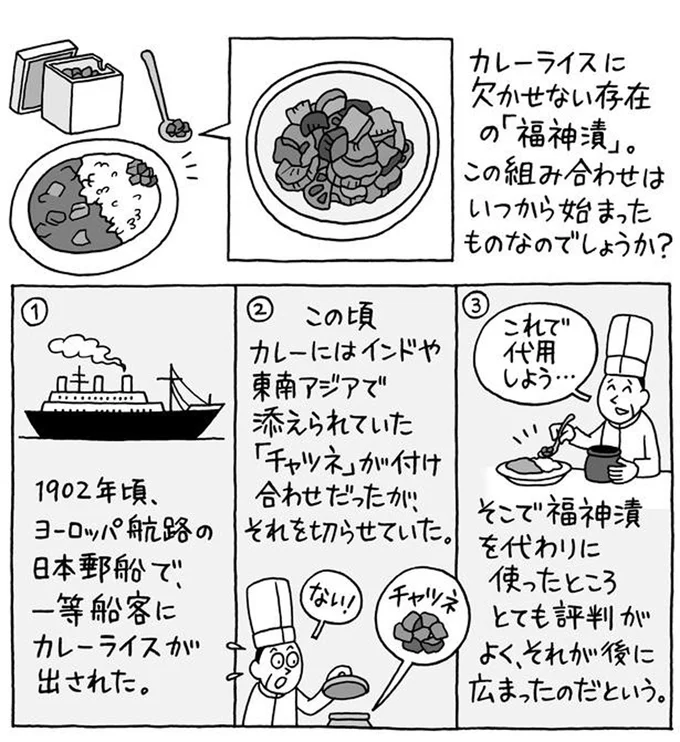 カレーライスに
欠かせない存在
の「福神漬」。
この組み合わせは
いつから始まった
ものなのでしょうか?
①
1902年頃、
ヨーロッパ航路の
日本郵船で、
一等船客に
カレーライスが
出された。
②
この頃
カレーにはインドや
東南アジアで
添えられていた
「チャツネ」が付け
合わせだったが、
それを切らせていた。
ない!
チャツネ
③
これで
代用
しよう…
そこで福神漬
を代わりに
使ったところ
とても評判が
よく、それが後に
広まったのだという。